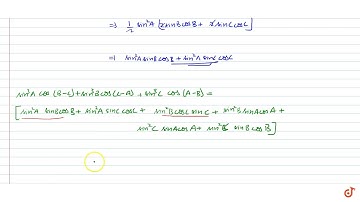 ⇒ 1/2 sin²A [2sinBcosB + 2sinCcosC]
⇒ sin²A sinBcosB + sin²A sinC cosC
sin²A cos(B-C) + sin²B cos(C-A) + sin²C cos(A-B) =
[sin²A sinBcosB + sin²A sinC cosC + sin²B cosC sinC + sin²B sinA cosA +
sin²C sinA cosA + sin²C sinB cosB]